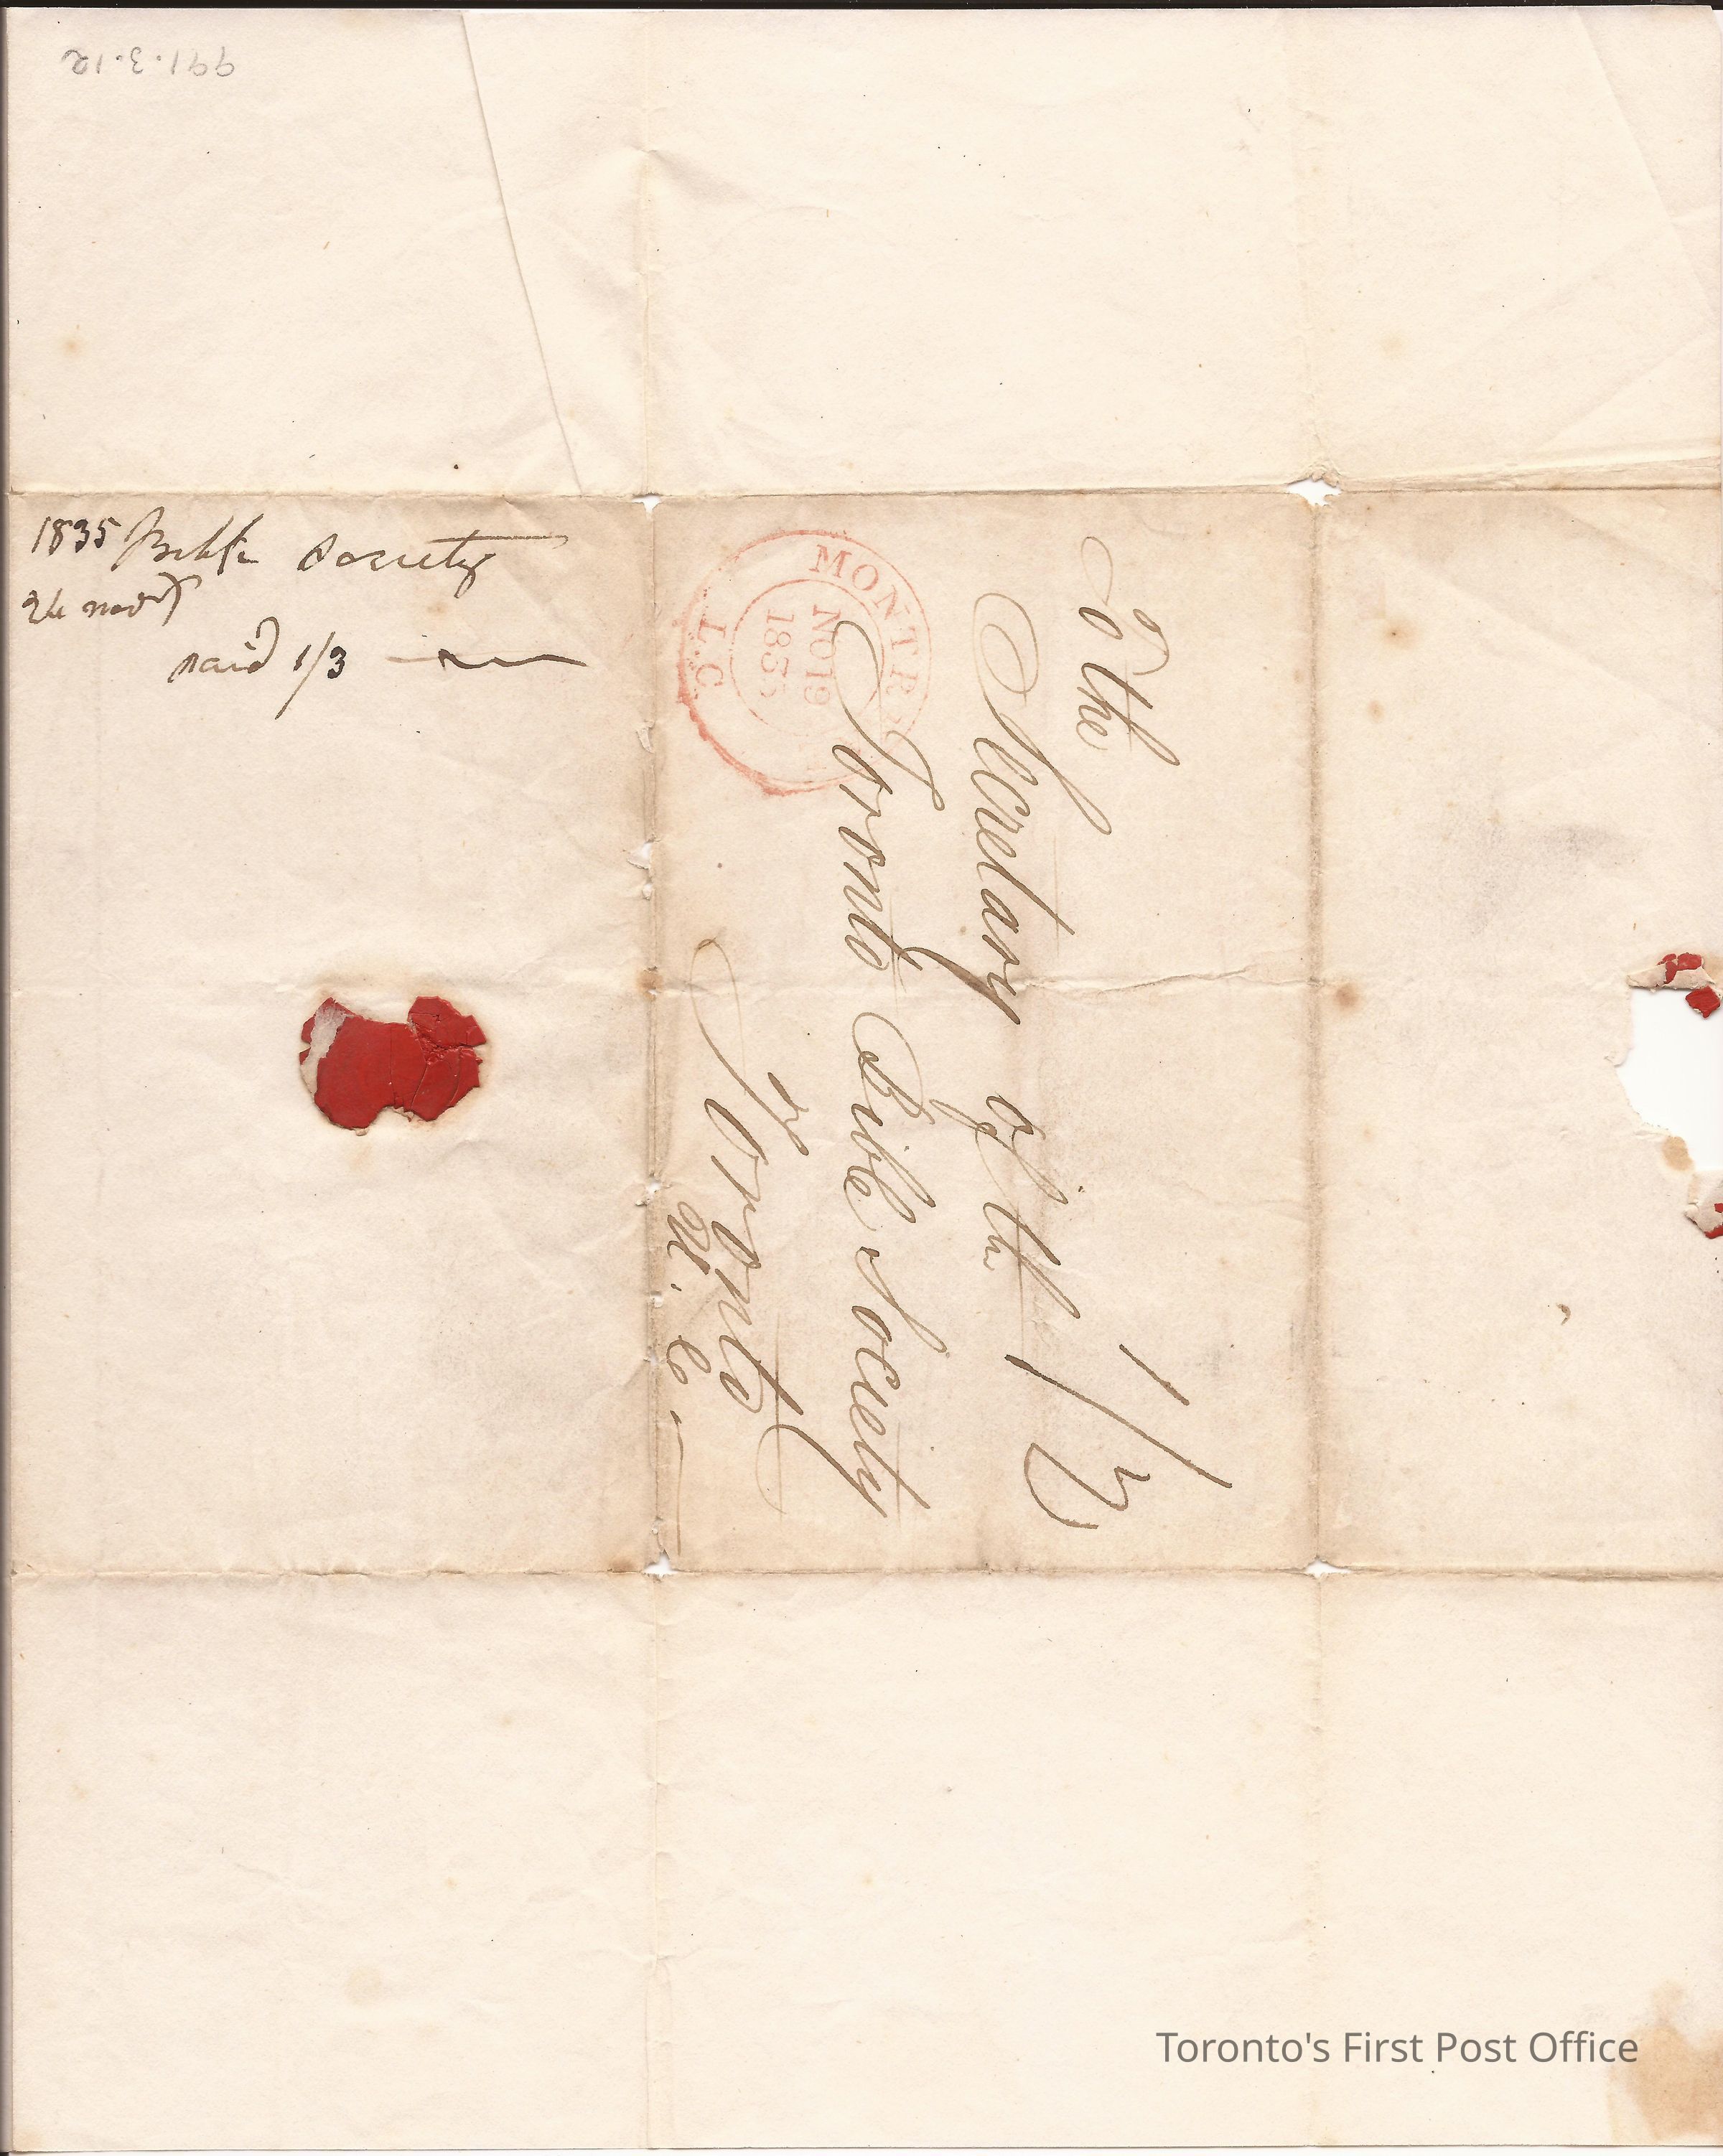 991.3.12
1835 Bible Society
24 Novr
paid 1/3
MONTREAL
NO 19
1835
L.C
1/3
To the
Secretary of the
Toronto Bible Society
Toronto
U. C.
Toronto's First Post Office